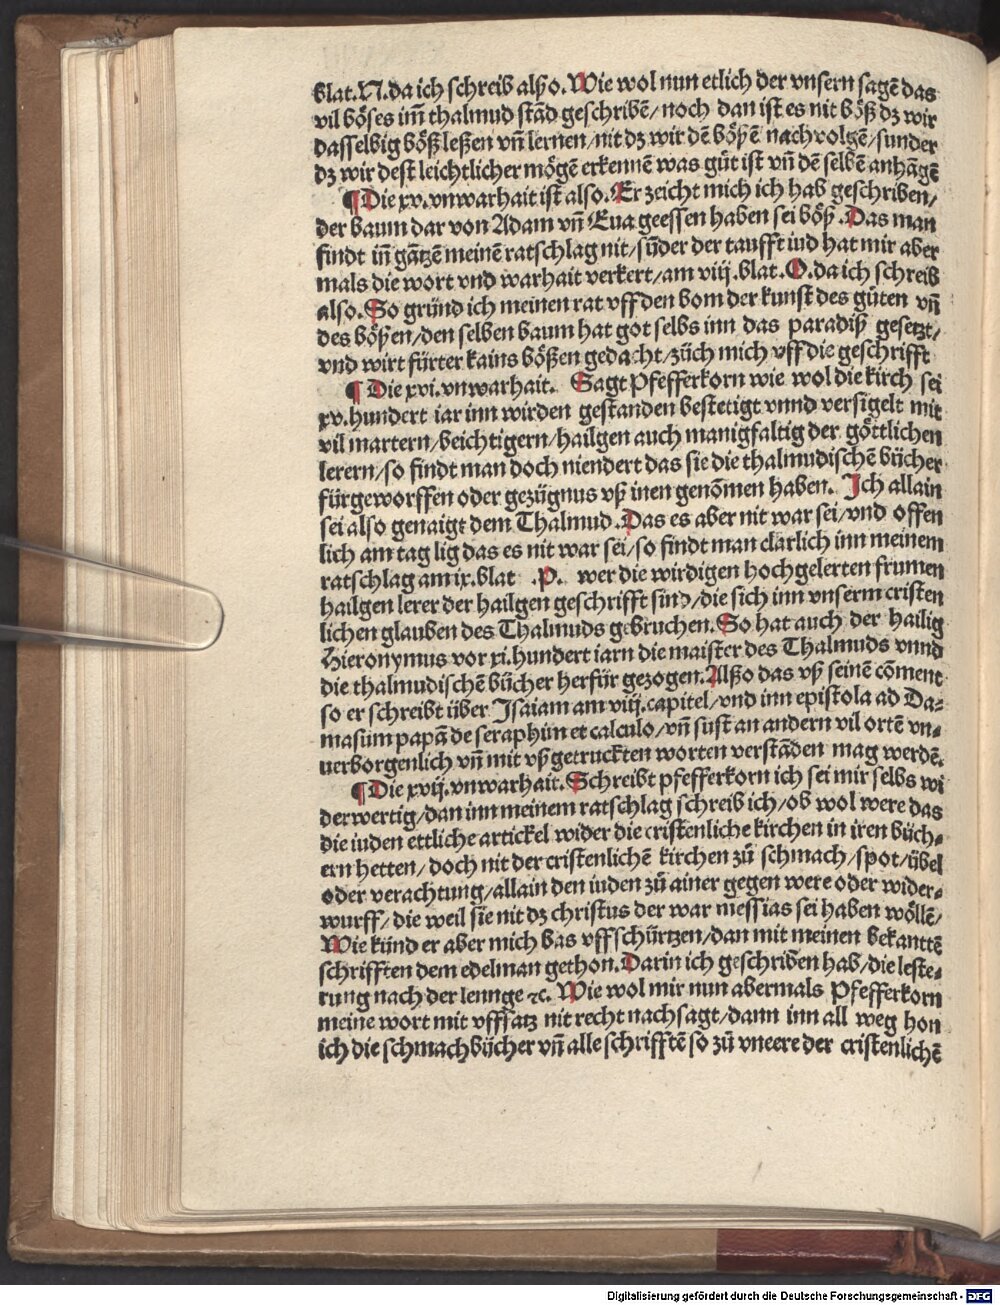 blat. N. da ich schreib alßo. Wie wol nun etlich der vnsern sagē das
vil böses im̄ thalmud stād geschribē / noch dan ist es nit böß dz wir
dasselbig böß leßen vn̄ lernen / nit dz wir dē böß ē nachvolgē / sunder
dz wir dest leichtlicher mögē erkennē was gůt ist vn̄ dē selbē anhāgē
¶ Die xv. vnwarhait ist also. Er zeicht mich ich hab geschriben /
der baum dar von Adam vn̄ Eua geessen haben sei böß. Das man
findt in̄ gātzē meinē ratschlag nit / sūder der taufft iud hat mir aber
mals die wort vnd warhait verkert / am viij. blat. O. da ich schreib
also. So gründ ich meinen rat vff den bom der kunst des gůten vn̄
des bößen / den selben baum hat got selbs inn das paradiß gesetzt /
vnd wirt fürter kains bößen gedacht / züch mich vff die geschrifft
¶ Die xvi. vnwarhait. Sagt Pfefferkorn wie wol die kirch sei
xv. hundert iar inn wirden gestanden bestetigt vnnd versigelt mit
vil martern / beichtigern / hailgen auch manigfaltig der göttlichen
lerern / so findt man doch niendert das sie die thalmudischē bücher
fürgeworffen oder gezügnus vß inen genōmen haben. Ich allain
sei also genaigt dem Thalmud. Das es aber nit war sei / vnd offen
lich am tag lig das es nit war sei / so findt man clarlich inn meinem
ratschlag am ix. blat .P. wer die wirdigen hochgelerten frumen
hailgen lerer der hailgen geschrifft sind / die sich inn vnserm cristen
lichen glauben des Thalmuds gebruchen. So hat auch der hailig
Hieronymus vor xi. hundert iarn die maister des Thalmuds vnnd
die thalmudischē bücher herfür gezogen. Alßo das vß seinē cōment
so er schreibt über Isaiam am viij. capitel / vnd inn epistola ad Da⸗
masum papā de seraphin et calculo / vn̄ sust an andern vil ortē vn⸗
uerborgenlich vn̄ mit vßgetruckten worten verstādēn mag werdē.
¶ Die xvij. vnwarhait. Schreibt pfefferkorn ich sei mir selbs wi
derwertig / dan inn meinem ratschlag schreib ich / ob wol were das
die iuden ettliche artickel wider die cristenliche kirchen in iren büch⸗
ern hetten / doch nit der cristenlichē kirchen zů schmach / spot / übel
oder verachtung / allain den iuden zů ainer gegen were oder wider⸗
wurff / die weil sie nit dz christus der war messias sei haben wöllē /
Wie künd er aber mich bas vffschürtzen / dan mit meinen bekantē
schrifften dem edelman gethon. Darin ich geschriben hab / die leste⸗
rung nach der lennge ⁊c. Wie wol mir nun abermals Pfefferkorn
meine wort mit vffsatz nit recht nachsagt / dann inn all weg hon
ich die schmachbücher vn̄ alle schrifftē so zů vneere der cristenlichē
Digitalisierung gefördert durch die Deutsche Forschungsgemeinschaft - DFG